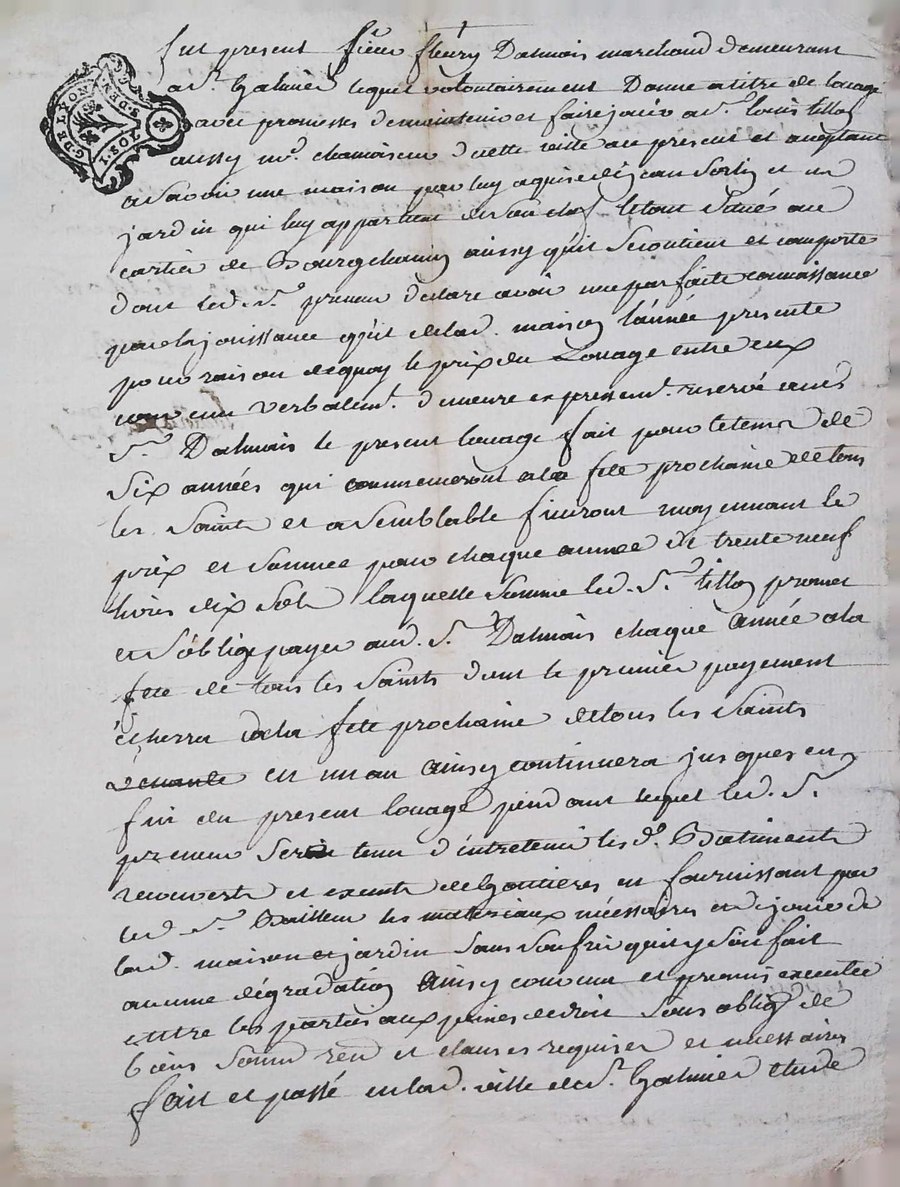 G. DE LYON
I. SOL. DEN.
fut present sieur fleury Dalmais marchand demeurant
a St. Galmier lequel volontairement Donne a titre de louage
avec promesses de maintenir et faire jouir a Sr. louis tillon
aussy md. chamoiseur de cette ville au present et acceptant
a savoir une maison par luy aquise de jean et un
jardin qui luy appartient de son chef le tout situé au
cartier de Bourgchanin ainsy qu'il se contient et comporte
dont led. Sr. preneur declare avoir une parfaite connaissance
par la jouissance qu'il de lad. maison l'année presente
pour raison de quoy le prix du Louage entre eux
convenu verbalemt. demeure expressemt. reservé aud
Sr. Dalmais le present louage fait pour le tems de
six années qui commenceront a la fete prochaine de tous
les Saints et a semblable finiront moyennant le
prix et somme pour chaque année de trente neuf
livres dix sols laquelle somme led. Sr. tillon promet
et s'oblige payer aud. Sr. Dalmais chaque année a la
fete de tous les Saints dont le premier payement
écherra a la fete prochaine de tous les Saints
en un an ainsy continuera jusques en
fin du present louage pendant lequel led. Sr.
preneur sera tenu d'entretenir les d. Batiments
recouverts et exempts de goutières en fournissant par
led Sr. Bailleur les materiaux nécessaires et de jouir de
lad. maison et jardin sans soufrir qu'il y soit fait
aucune dégradation Ainsy convenu et promis executer
entre les parties aux peines de droit sous oblig de
biens soum ren et clauses requises et necessaires
fait et passé en lad. ville de St. Galmier etude